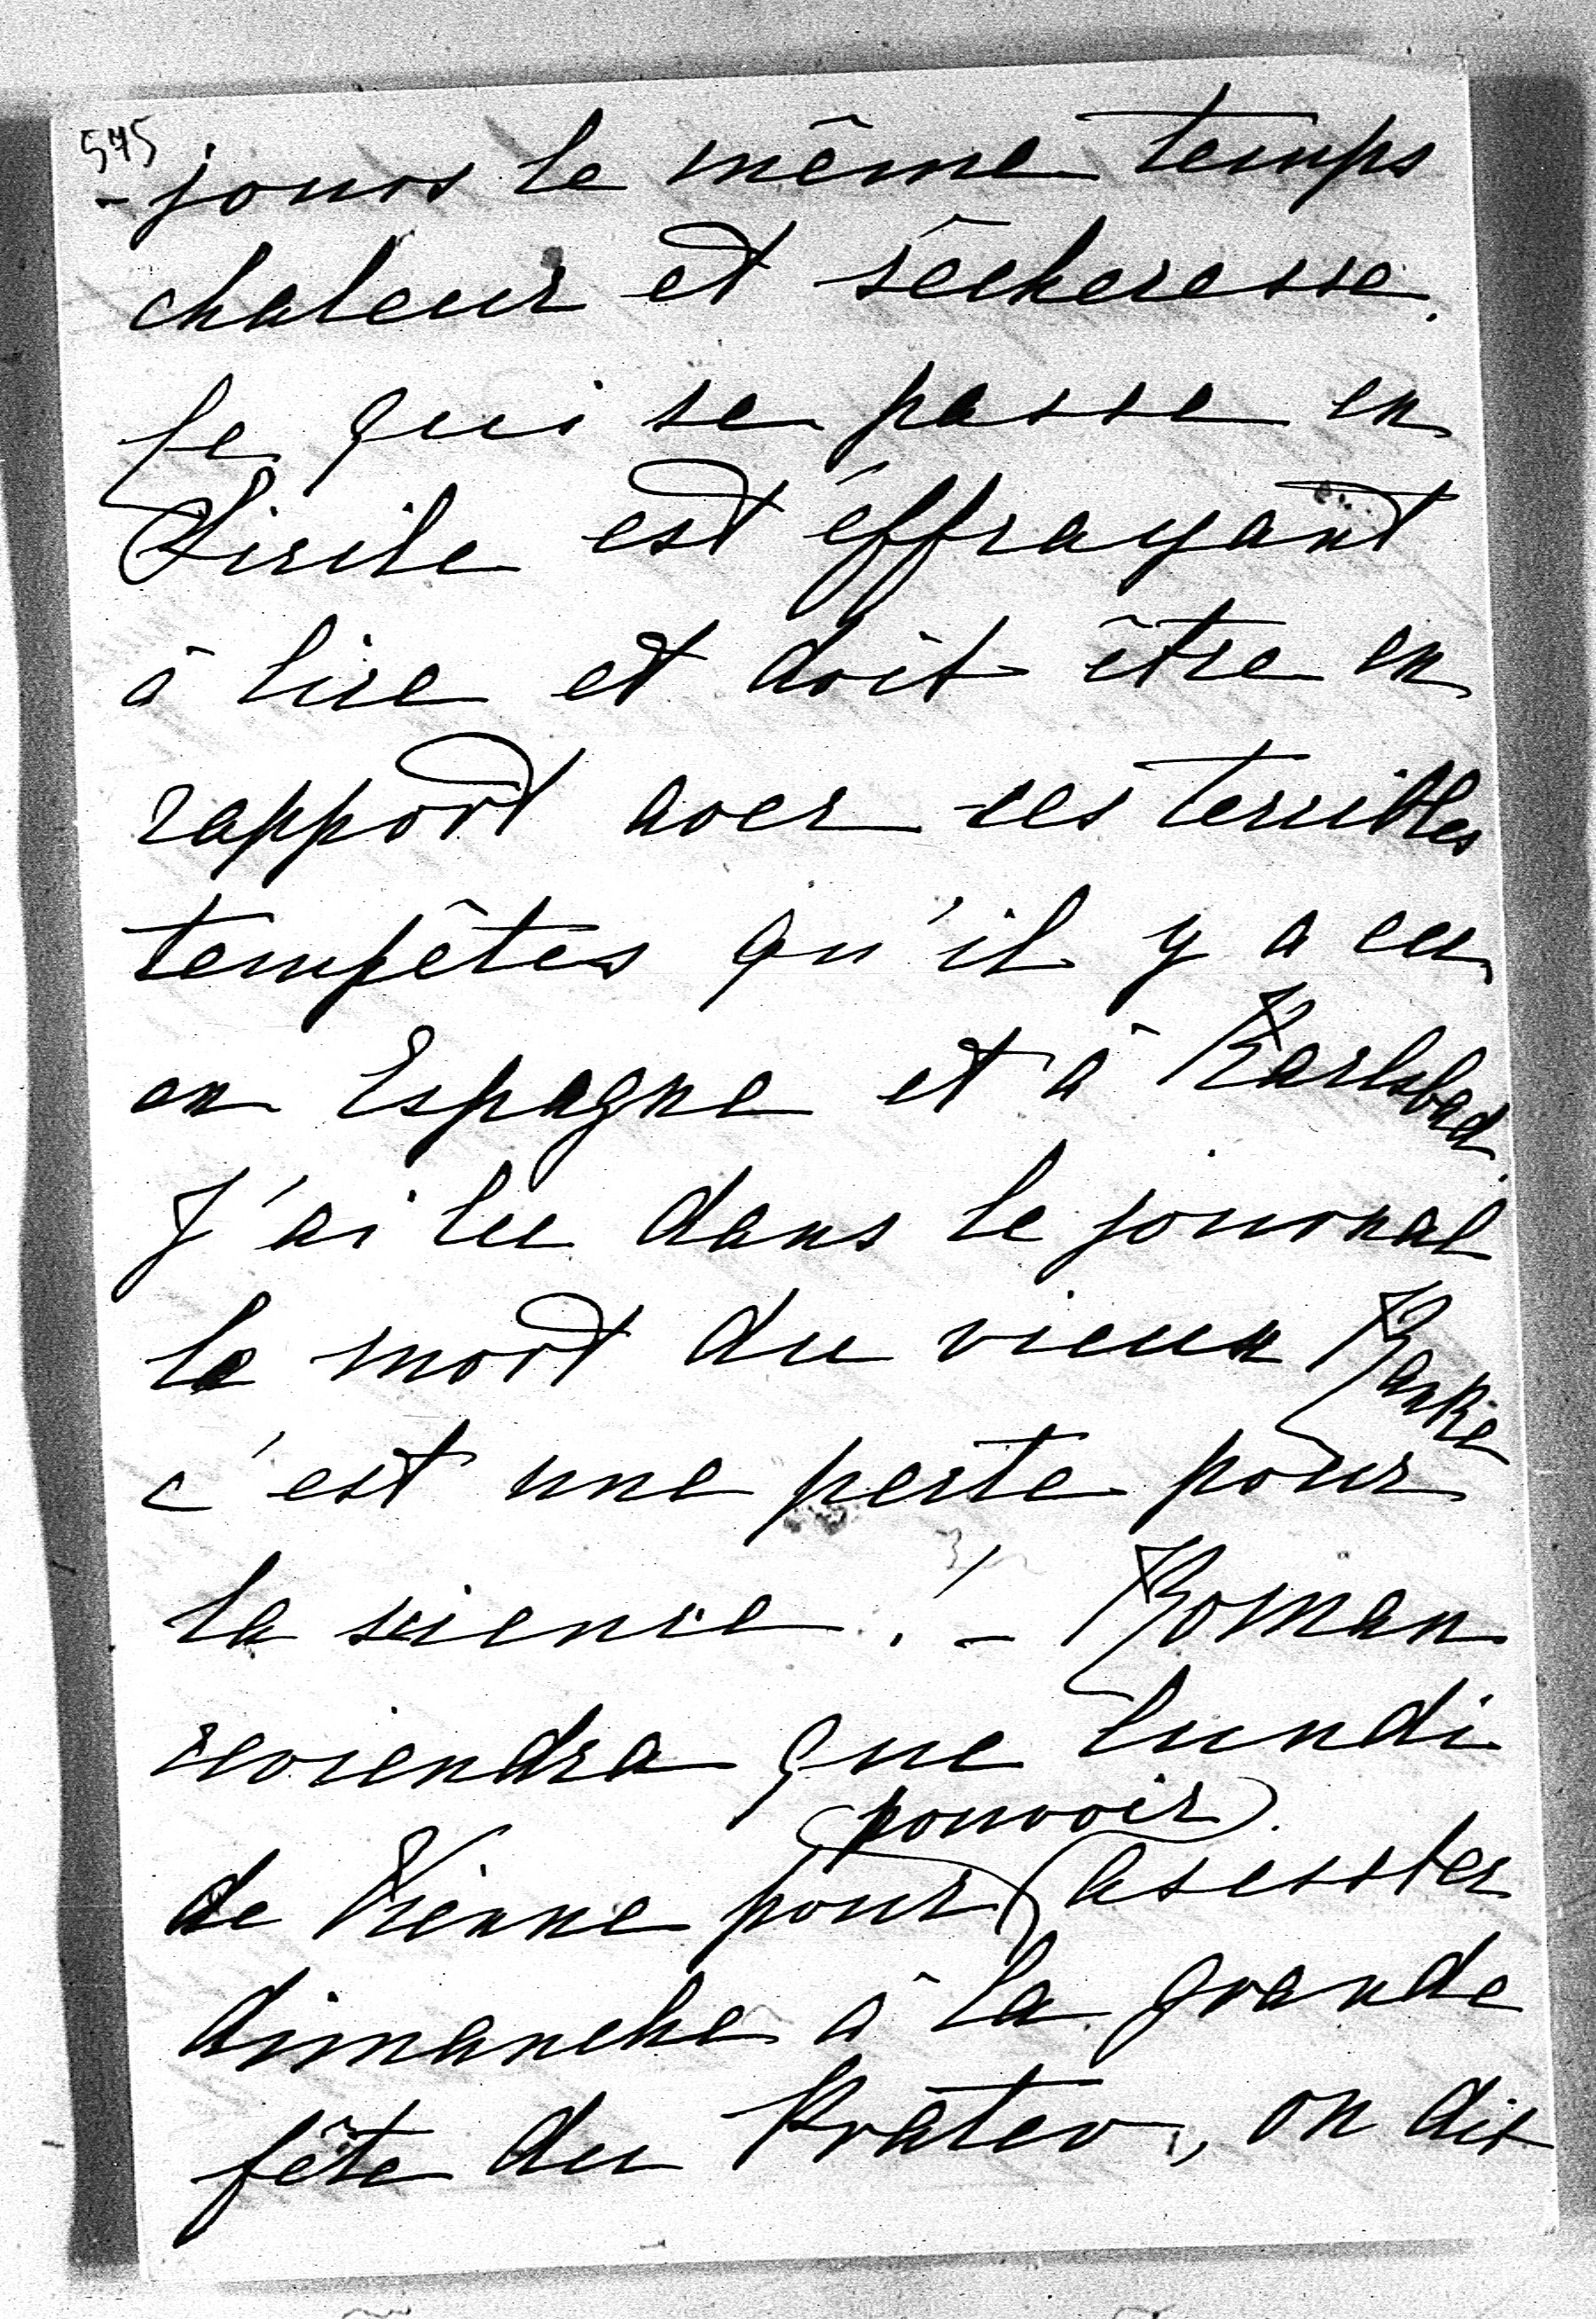 575
-jours le même temps
chaleur et sécheresse.
Ce qui se passe en
Sicile est éffrayant
à lire et doit être en
rapport avec ces terribles
tempêtes qu'il y a eu
en Espagne et à Karlsbad.
J'ai lu dans le journal
la mort du vieux Ranke
c'est une perte pour
la science! – Roman
reviendra que lundi
pouvoir
de Vienne pour asesster
dimanche à la grande
fête du Prater, on dit